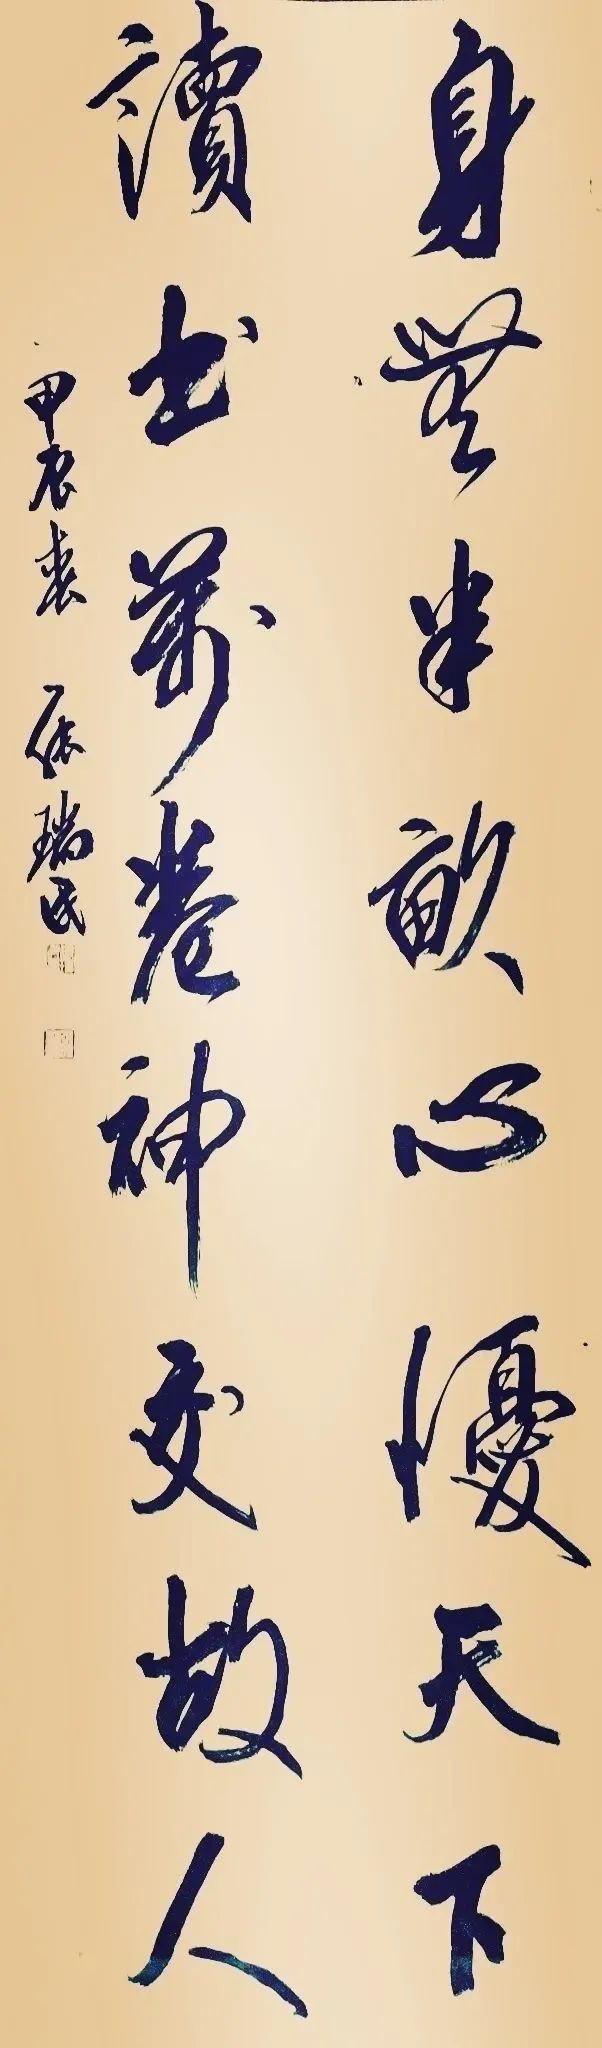 身無半畝心優天下
讀书萬卷神交故人
甲辰春 張瑞民